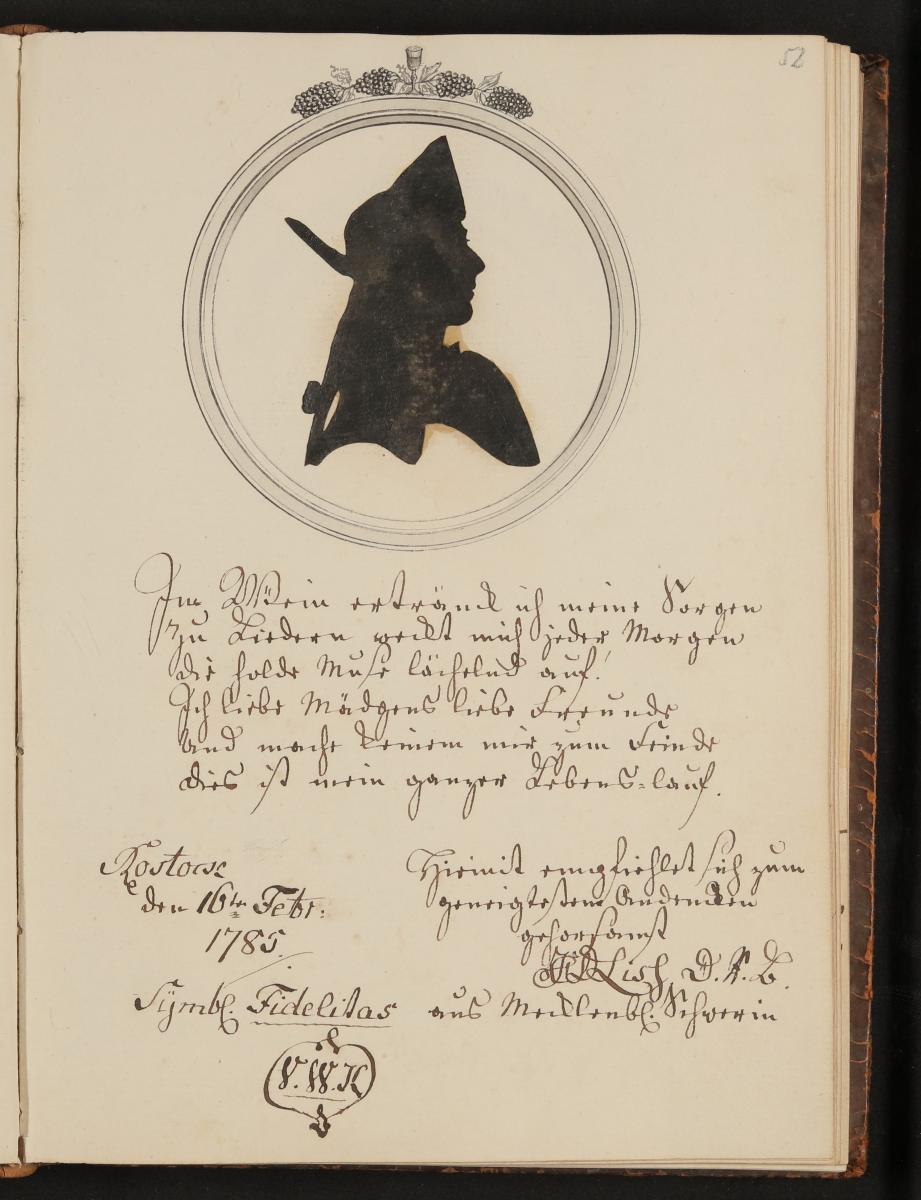 52
Im Wein ertränck ich meine Sorgen
Zu Liedern weckt mich jeder Morgen
die holde Muse lächelnd auf.
Ich liebe Mädgens liebe Freunde
und mache keinem mir zum Feinde
dies ist mein ganzer Lebens-lauf.
Rostock
den 16ten Febr:
1785.
Symbl. Fidelitas
V. W. K
Hiemit empfiehlet sich zum
geneigtesten Andencken
gehorsamst
Lisch, D. R. B.
aus Mecklenb. Schwerin